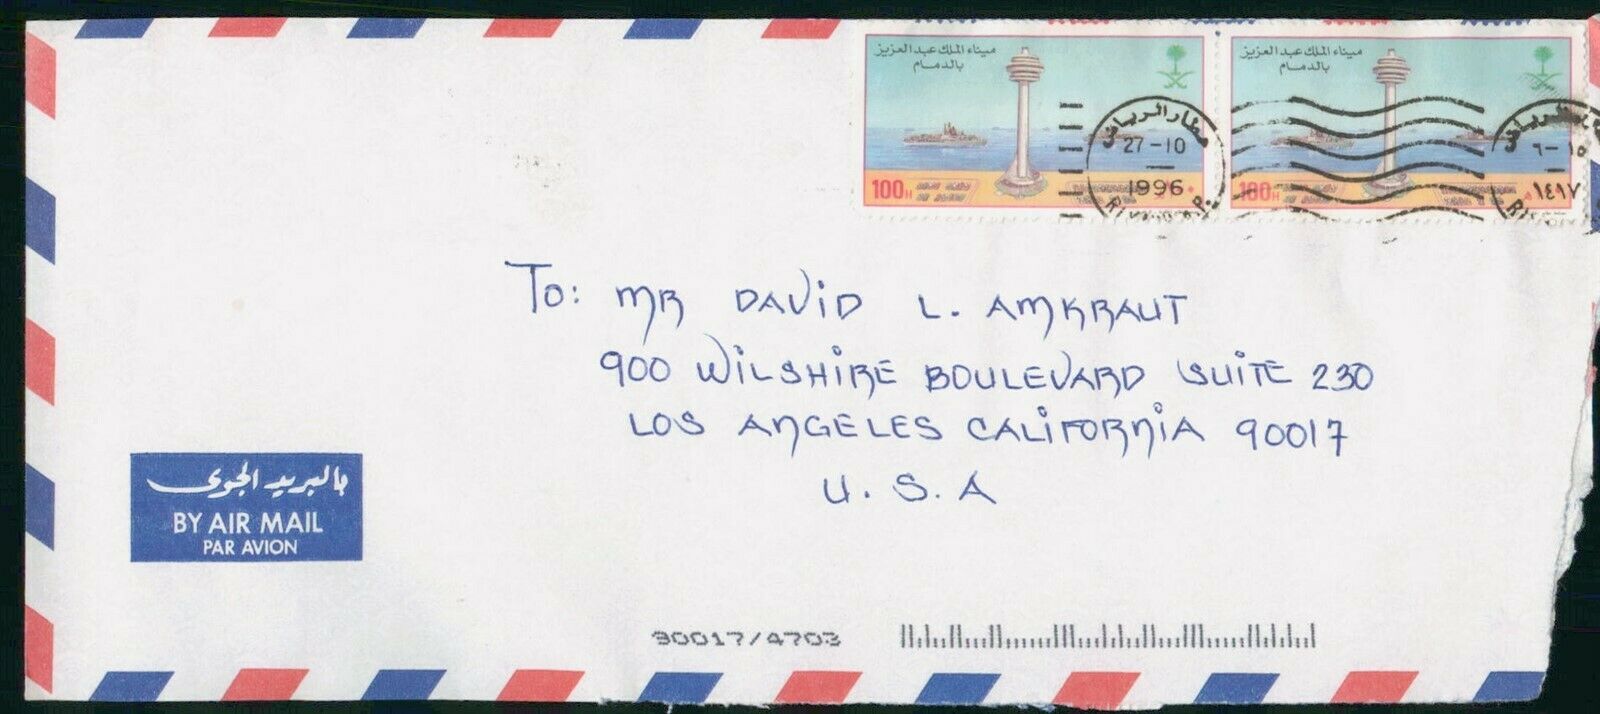 ميناء الملك عبد العزيز
بالدمام
100H
ميناء الملك عبد العزيز
بالدمام
100H
مطار الرياض
27-10
1996
٦-١٥
١٤١٧
To: MR DAVID L. AMKRAUT
900 WILSHIRE BOULEVARD SUITE 230
LOS ANGELES CALIFORNIA 90017
U. S. A
بالبريد الجوى
BY AIR MAIL
PAR AVION
90017/4703